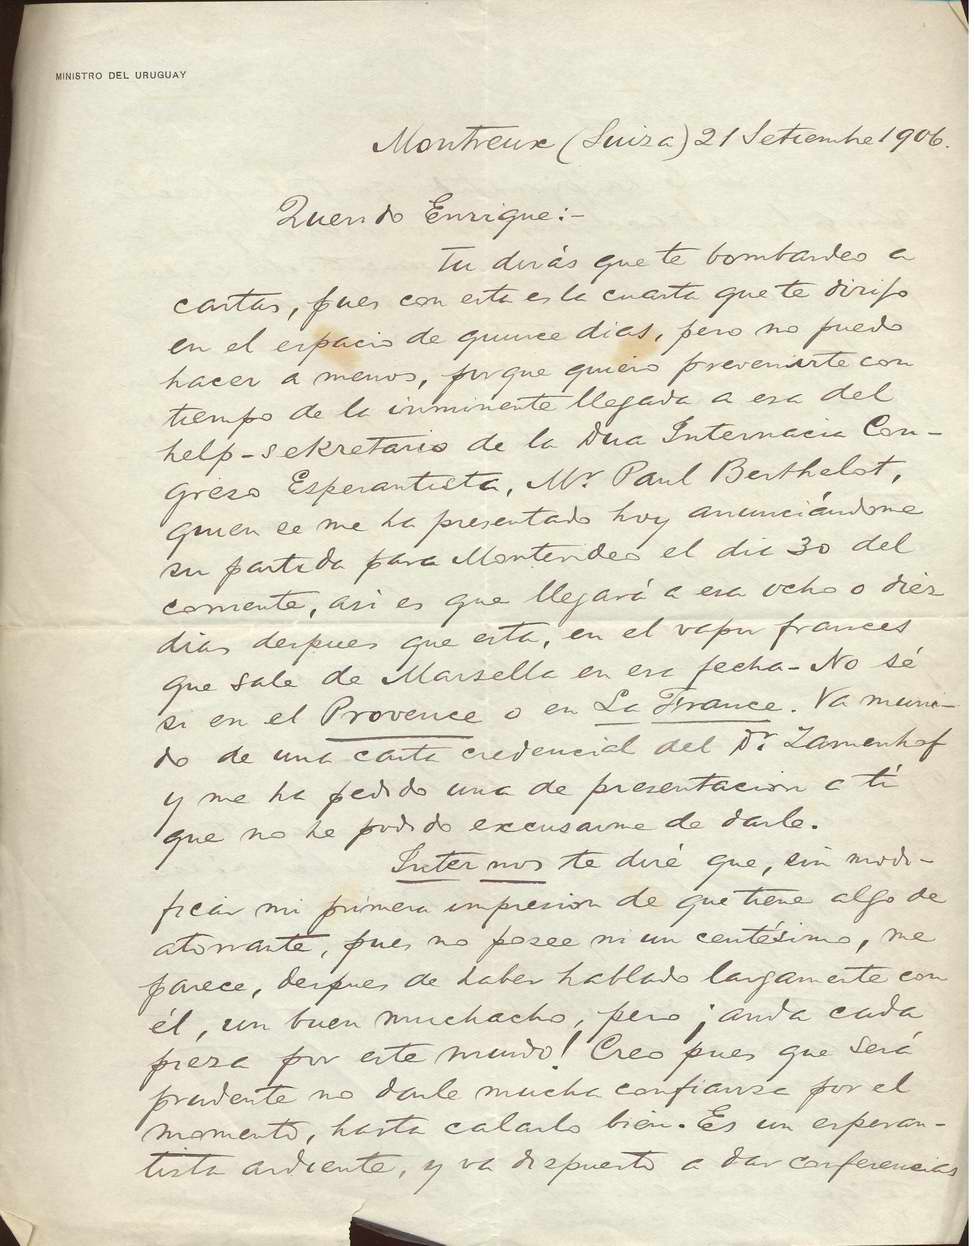 MINISTRO DEL URUGUAY
Montreux (Suiza) 21 Setiembre 1906.
Querido Enrique:-
Tu dirás que te bombardeo a
cartas, pues con esta es la cuarta que te dirijo
en el espacio de quince dias, pero no puedo
hacer a menos, porque quiero prevenirte con
tiempo de la inminente llegada a esa del
help-sekretario de la Dua Internacia Con-
greso Esperantista, Mr. Paul Berthelot,
quien se me ha presentado hoy anunciándome
su partida para Montevideo el dia 30 del
corriente, asi es que llegará a esa ocho o diez
dias despues que esta, en el vapor frances
que sale de Marsella en esa fecha- No sé
si en el Provence o en La France. Va muni-
do de una carta credencial del Dr. Zamenhof
y me ha pedido una de presentacion a tí
que no he podido excusarme de darle.
Inter nos te diré que, sin modi-
ficar mi primera impresion de que tiene algo de
atorrante, pues no posee ni un centésimo, me
parece, despues de haber hablado largamente con
él, un buen muchacho, pero ¡anda cada
pieza por este mundo! Creo pues que será
prudente no darle mucha confianza por el
momento, hasta calarlo bien. Es un esperan-
tista ardiente, y va dispuesto a dar conferencias